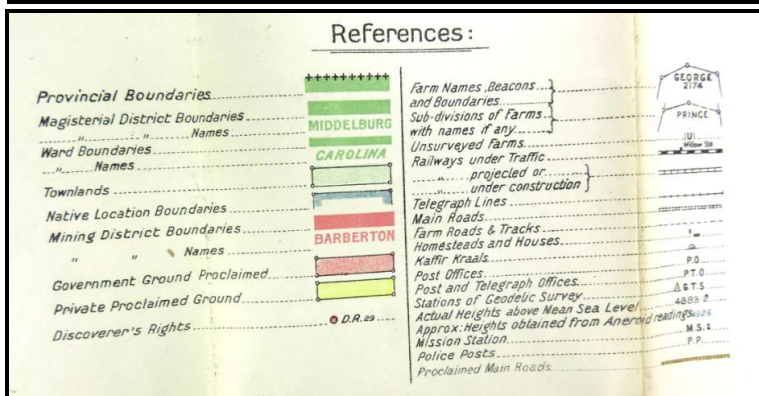 References:
Provincial Boundaries
Magisterial District Boundaries
" " Names MIDDELBURG
Ward Boundaries
" Names CAROLINA
Townlands
Native Location Boundaries
Mining District Boundaries
" " Names BARBERTON
Government Ground Proclaimed
Private Proclaimed Ground
Discoverer's Rights D.R.29
Farm Names, Beacons and Boundaries GEORGE 2174
Sub-divisions of Farms with names if any PRINCE
Unsurveyed Farms (U)
Railways under Traffic Willow Sta
" projected or
" under construction
Telegraph Lines
Main Roads
Farm Roads & Tracks
Homesteads and Houses
Kaffir Kraals
Post Offices P.O
Post and Telegraph Offices P.T.O
Stations of Geodetic Survey Δ G.T.S
Actual Heights above Mean Sea Level 4883.2
Approx: Heights obtained from Aneroid readings
Mission Station M.S.
Police Posts P.P.
Proclaimed Main Roads